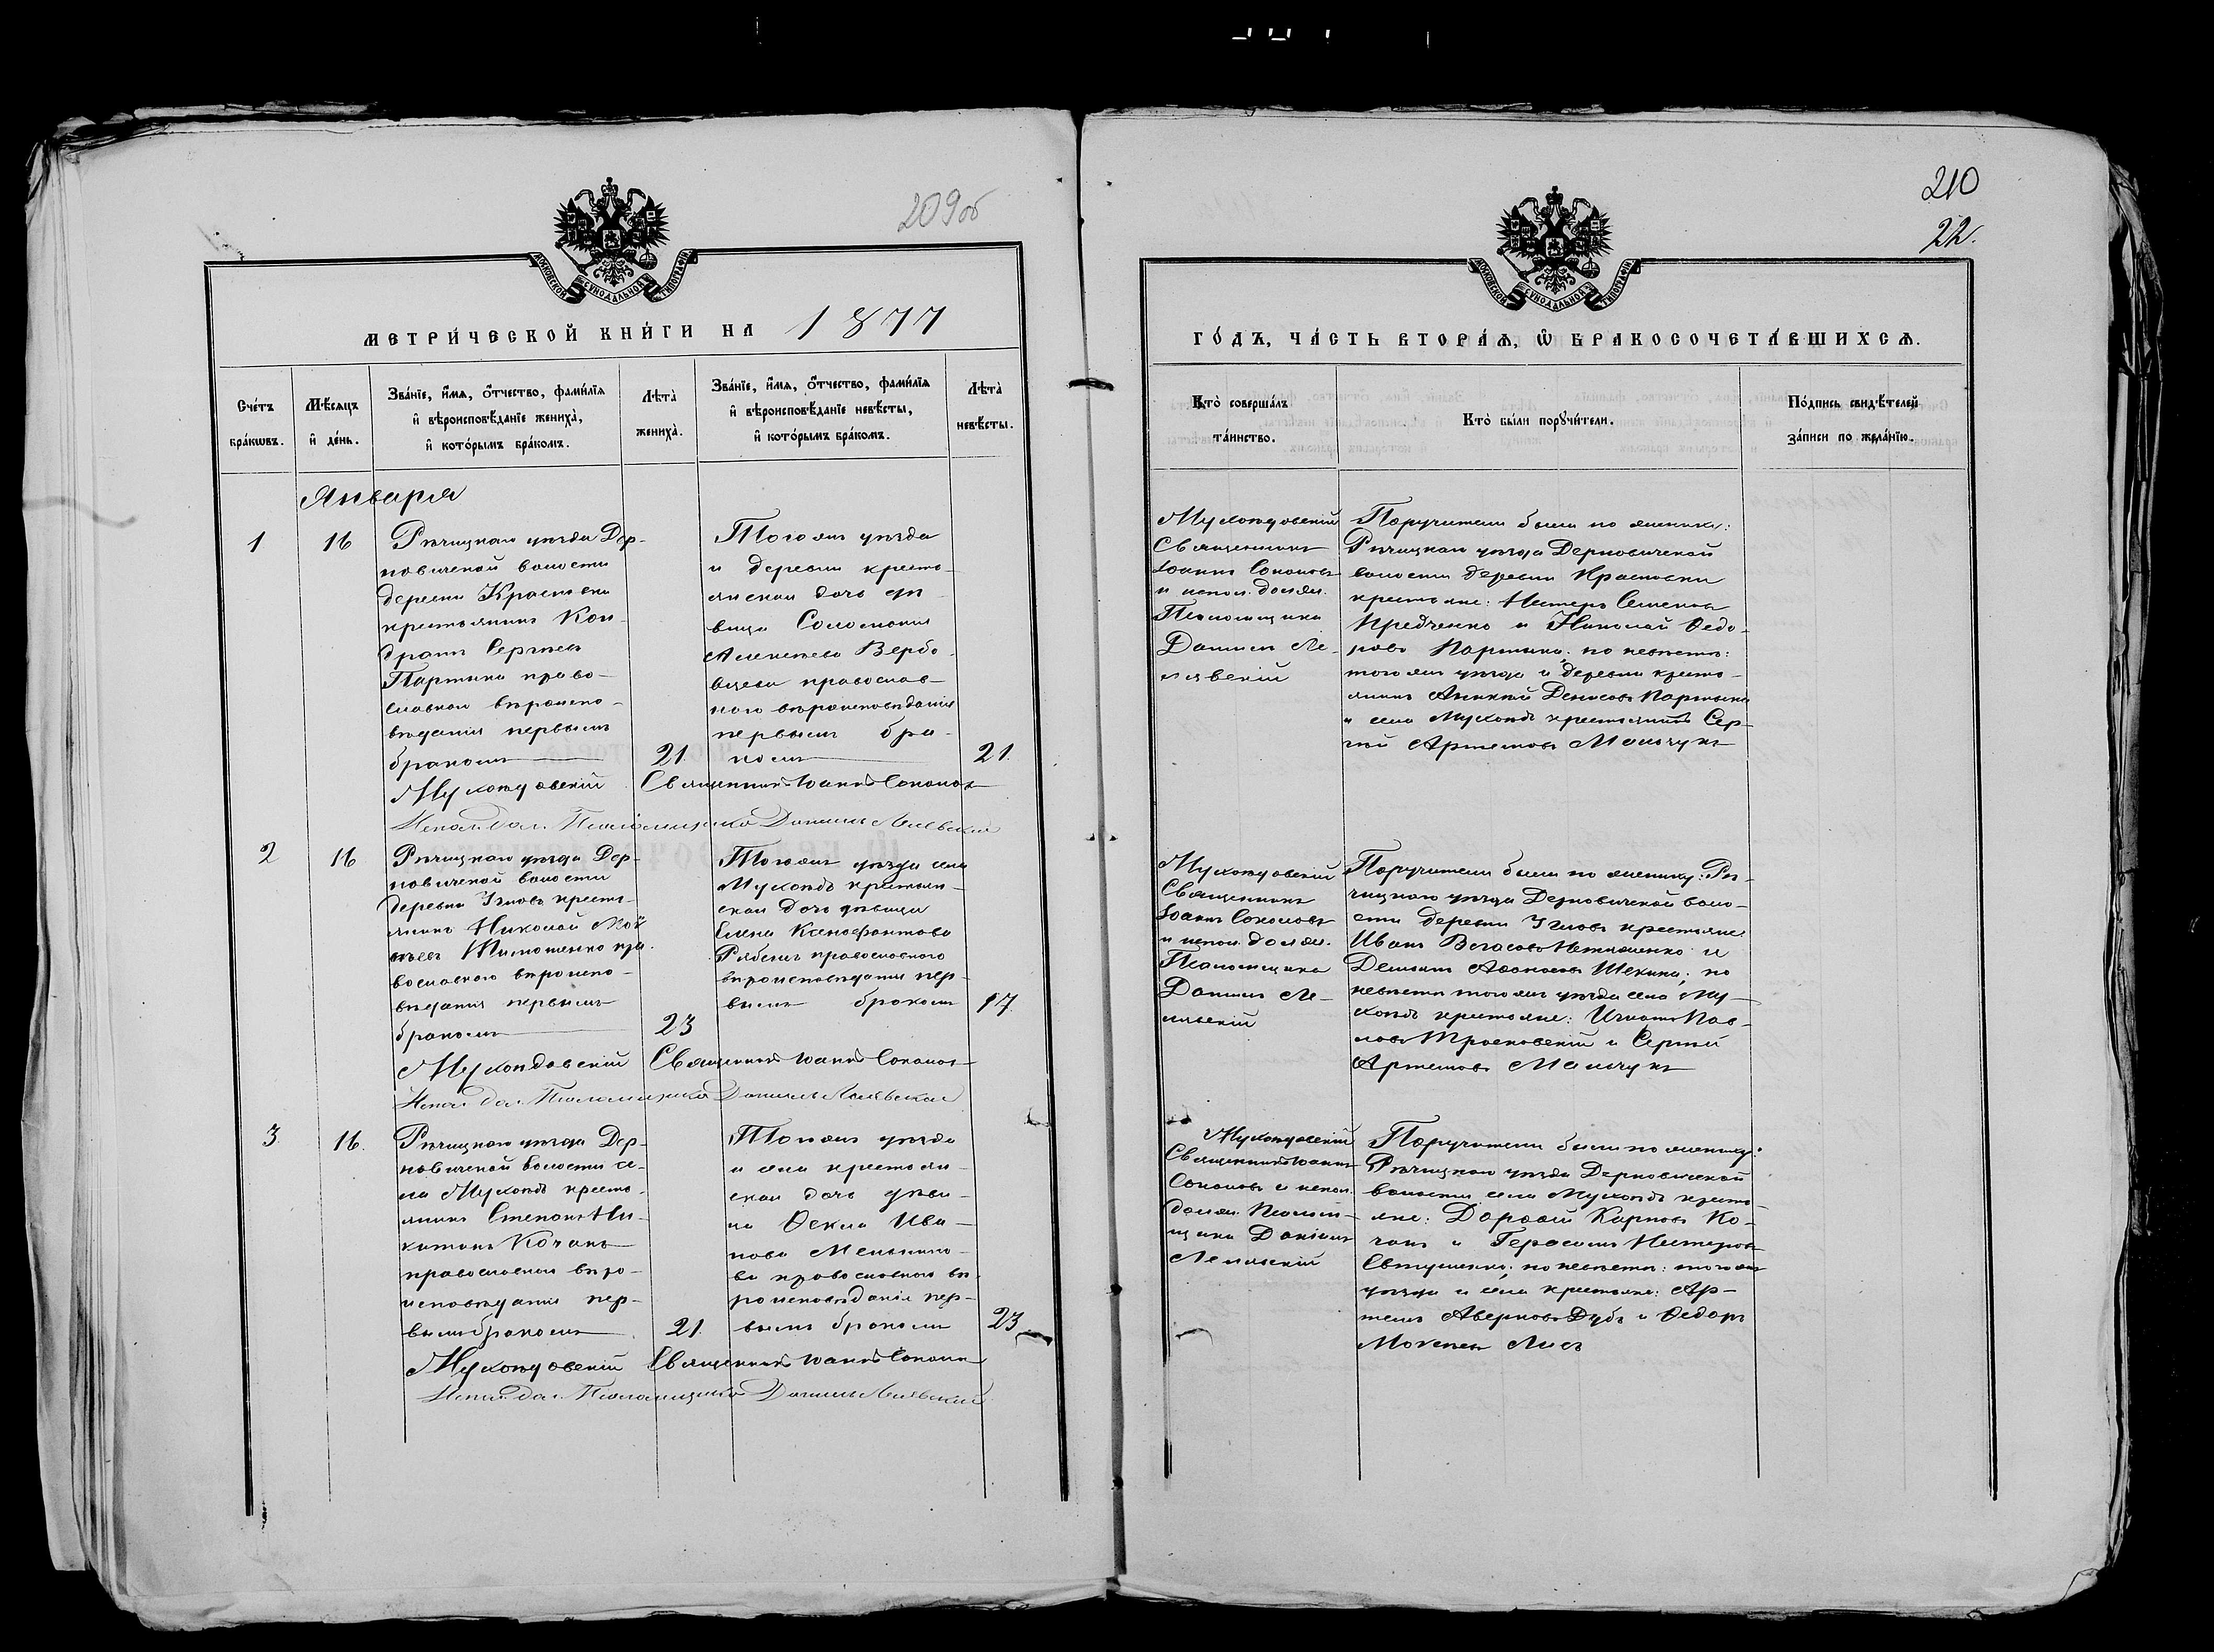 209об
МОСКОВСКОЙ СѴНОДАЛЬНОЙ ТИПОГРАФІИ
МЕТРИ́ЧЕСКОЙ КНИ́ГИ НА 1877
Сче́тъ бра́кωвъ.
Мѣ́сяцъ и҆ де́нь.
Зва́нїе, и҆́мѧ, о҆́тчество, фами́лїѧ
и҆ вѣроисповѣ́данїе жениха̀,
и҆ кото́рымъ бра́комъ.
Лѣта̀ жениха̀.
Зва́нїе, и҆́мѧ, о҆́тчество, фами́лїѧ
и҆ вѣроисповѣ́данїе невѣ́сты,
и҆ кото́рымъ бра́комъ.
Лѣта̀ невѣ́сты.
Января
1
16
Рѣчицкаго уѣзда Дер-
новичской волости
деревни Красновки
крестьянинъ Кон-
дратъ Сергѣевъ
Партыка право-
славнаго вѣроиспо-
вѣданія первымъ
бракомъ
21.
Тогожъ уѣзда
и деревни кресть-
янская дочь дѣ-
вица Соломонія
Алексѣева Вербо-
вцева православ-
наго вѣроисповѣданія
первымъ бра-
комъ
21.
Мухоѣдовскій Священникъ Іоаннъ Соколовъ
Испол. дол. Псаломщика Даніилъ
2
16
Рѣчицкаго уѣзда Дер-
новичской волости
деревни Угловъ кресть-
янинъ Николай Мой-
сѣевъ Тимошенко пра-
вославнаго вѣроиспо-
вѣданія первымъ
бракомъ
23
Тогожъ уѣзда села
Мухоѣдъ крестьян-
ская дочь дѣвица
Елена Ксенофонтова
православнаго
вѣроисповѣданія пер-
вымъ бракомъ
17.
Мухоѣдовскій Священникъ Іоаннъ Соколовъ
Испол. дол. Псаломщика Даніилъ
3.
16.
Рѣчицкаго уѣзда Дер-
новичской волости се-
ла Мухоѣдъ кресть-
янинъ Степанъ Ни-
китинъ Коганъ
православнаго вѣро-
исповѣданія пер-
вымъ бракомъ
21.
Тогожъ уѣзда
и села крестьян-
ская дочь дѣви-
ца Ѳекла Ива-
нова
православнаго вѣ-
роисповѣданія пер-
вымъ бракомъ
23
Мухоѣдовскій Священникъ Іоаннъ Соколовъ
Испол. дол. Псаломщика Даніилъ
210
22.
МОСКОВСКОЙ СѴНОДАЛЬНОЙ ТИПОГРАФІИ
ГО́ДЪ, ЧА́СТЬ ВТОРА́Ѧ, Ѡ҆ БРАКОСОЧЕТА́ВШИХСѦ.
Кто̀ соверша́лъ та́инство.
Кто̀ бы́ли порꙋчи́тели.
По́дпись свидѣ́телей
за́писи по жела́нїю.
Мухоѣдовскій
Священникъ
Іоаннъ Соколовъ
и испол. должн.
Псаломщика
Даніилъ
Поручители были по женихѣ:
Рѣчицкаго уѣзда Дерновичской
волости деревни Красновки
крестьяне: Нестеръ Семеновъ
и Николай Ѳедо-
ровъ Партыка; по невѣстѣ:
тогожъ уѣзда и деревни кресть-
янинъ Денисовъ Партыка
и села Мухоѣдъ крестьянинъ Сер-
гій Артемовъ
Мухоѣдовскій
Священникъ
Іоаннъ Соколовъ
и испол. должн.
Псаломщика
Даніилъ
Поручители были по жениху: Рѣ-
чицкаго уѣзда Дерновичской воло-
сти деревни Угловъ крестьяне
Иванъ и
по
невѣстѣ тогожъ уѣзда села Му-
хоѣдъ крестьяне: Игнатъ Пав-
ловъ и Сергій
Артемовъ
Мухоѣдовскій
Священникъ Іоаннъ
Соколовъ и испол.
должн. Псалом-
щика Даніилъ
Поручители были по жениху:
Рѣчицкаго уѣзда Дерновичской
волости села Мухоѣдъ кресть-
яне: Дороѳей Карповъ Ко-
ганъ и Герасимъ Нестеровъ
Евтушенко; по невѣстѣ: тогожъ
уѣзда и села крестьяне: Ар-
темъ Аверковъ Дубъ и Ѳедоръ